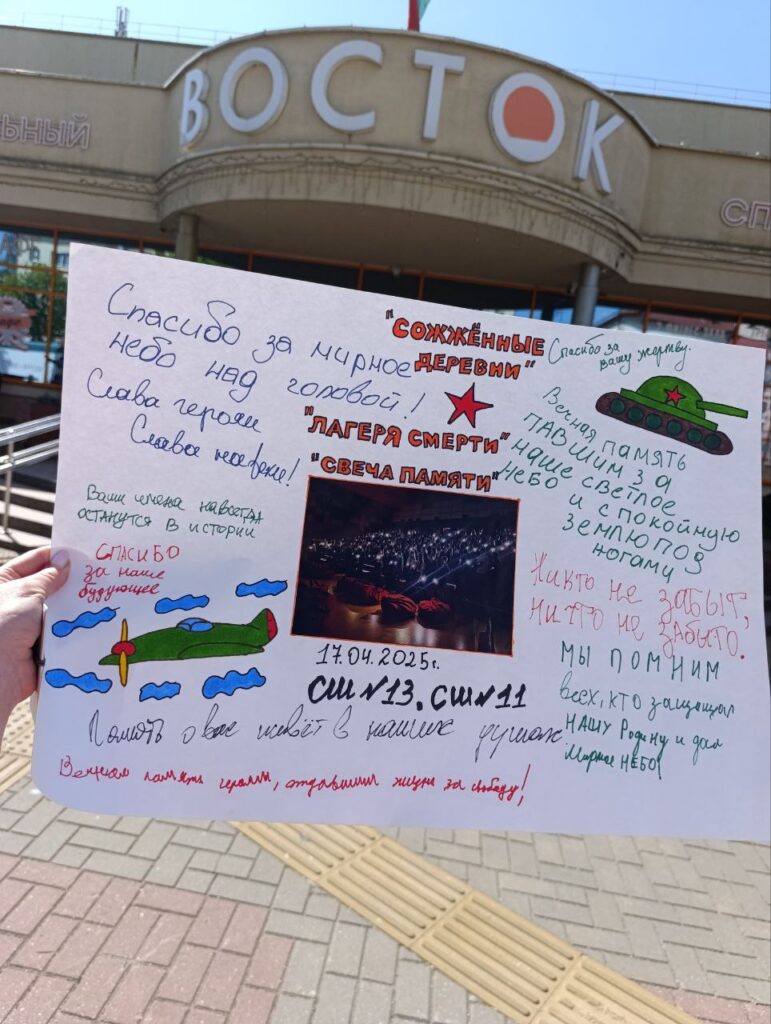 ВОСТОК
ЬНЫЙ
СП
Спасибо за мирное
небо над головой!
Слава героям
Слава навеки!
"СОЖЖЁННЫЕ
ДЕРЕВНИ"
"ЛАГЕРЯ СМЕРТИ"
"СВЕЧА ПАМЯТИ"
Спасибо за
вашу жертву.
Вечная память
ПАВШИМ ЗА
наше светлое
Небо и спокойную
землю под
ногами
Ваши имена навсегда
останутся в истории
СПАСИБО
за наше
будующее
Никто не забыт,
ничто не забыто.
МЫ ПОМНИМ
всех, кто защищал
НАШУ Родину и дал
Мирное НЕБО!
17.04.2025г.
СШ №13, СШ №11
Память о вас живёт в наших душах
Вечная память героям, отдавшим жизни за свободу!